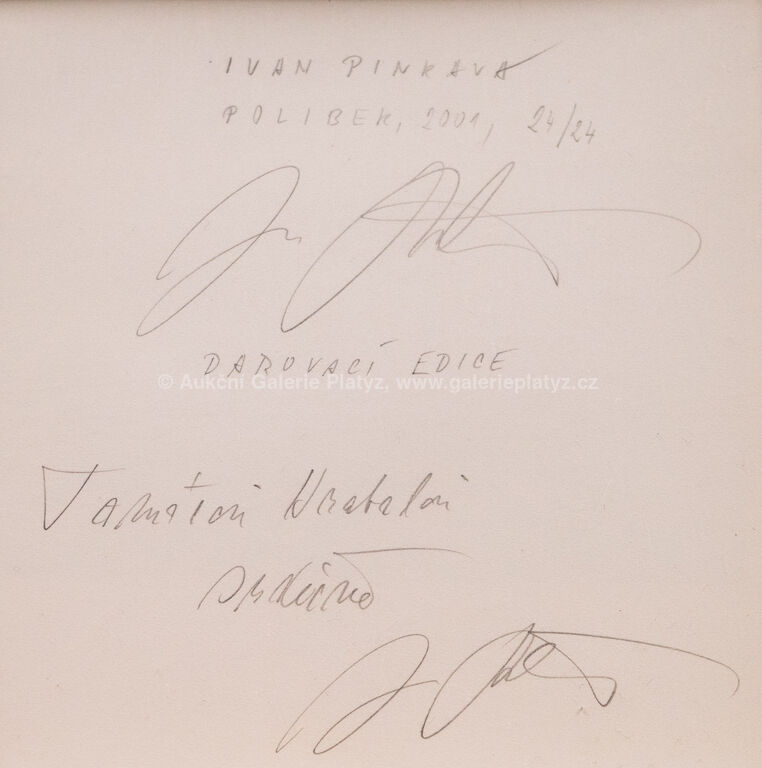 IVAN PINKAVA
POLIBEK, 2001, 24/24
DAROVACÍ EDICE
© Aukční Galerie Platýz, www.galerieplatyz.cz
Hrabalovi
srdečně